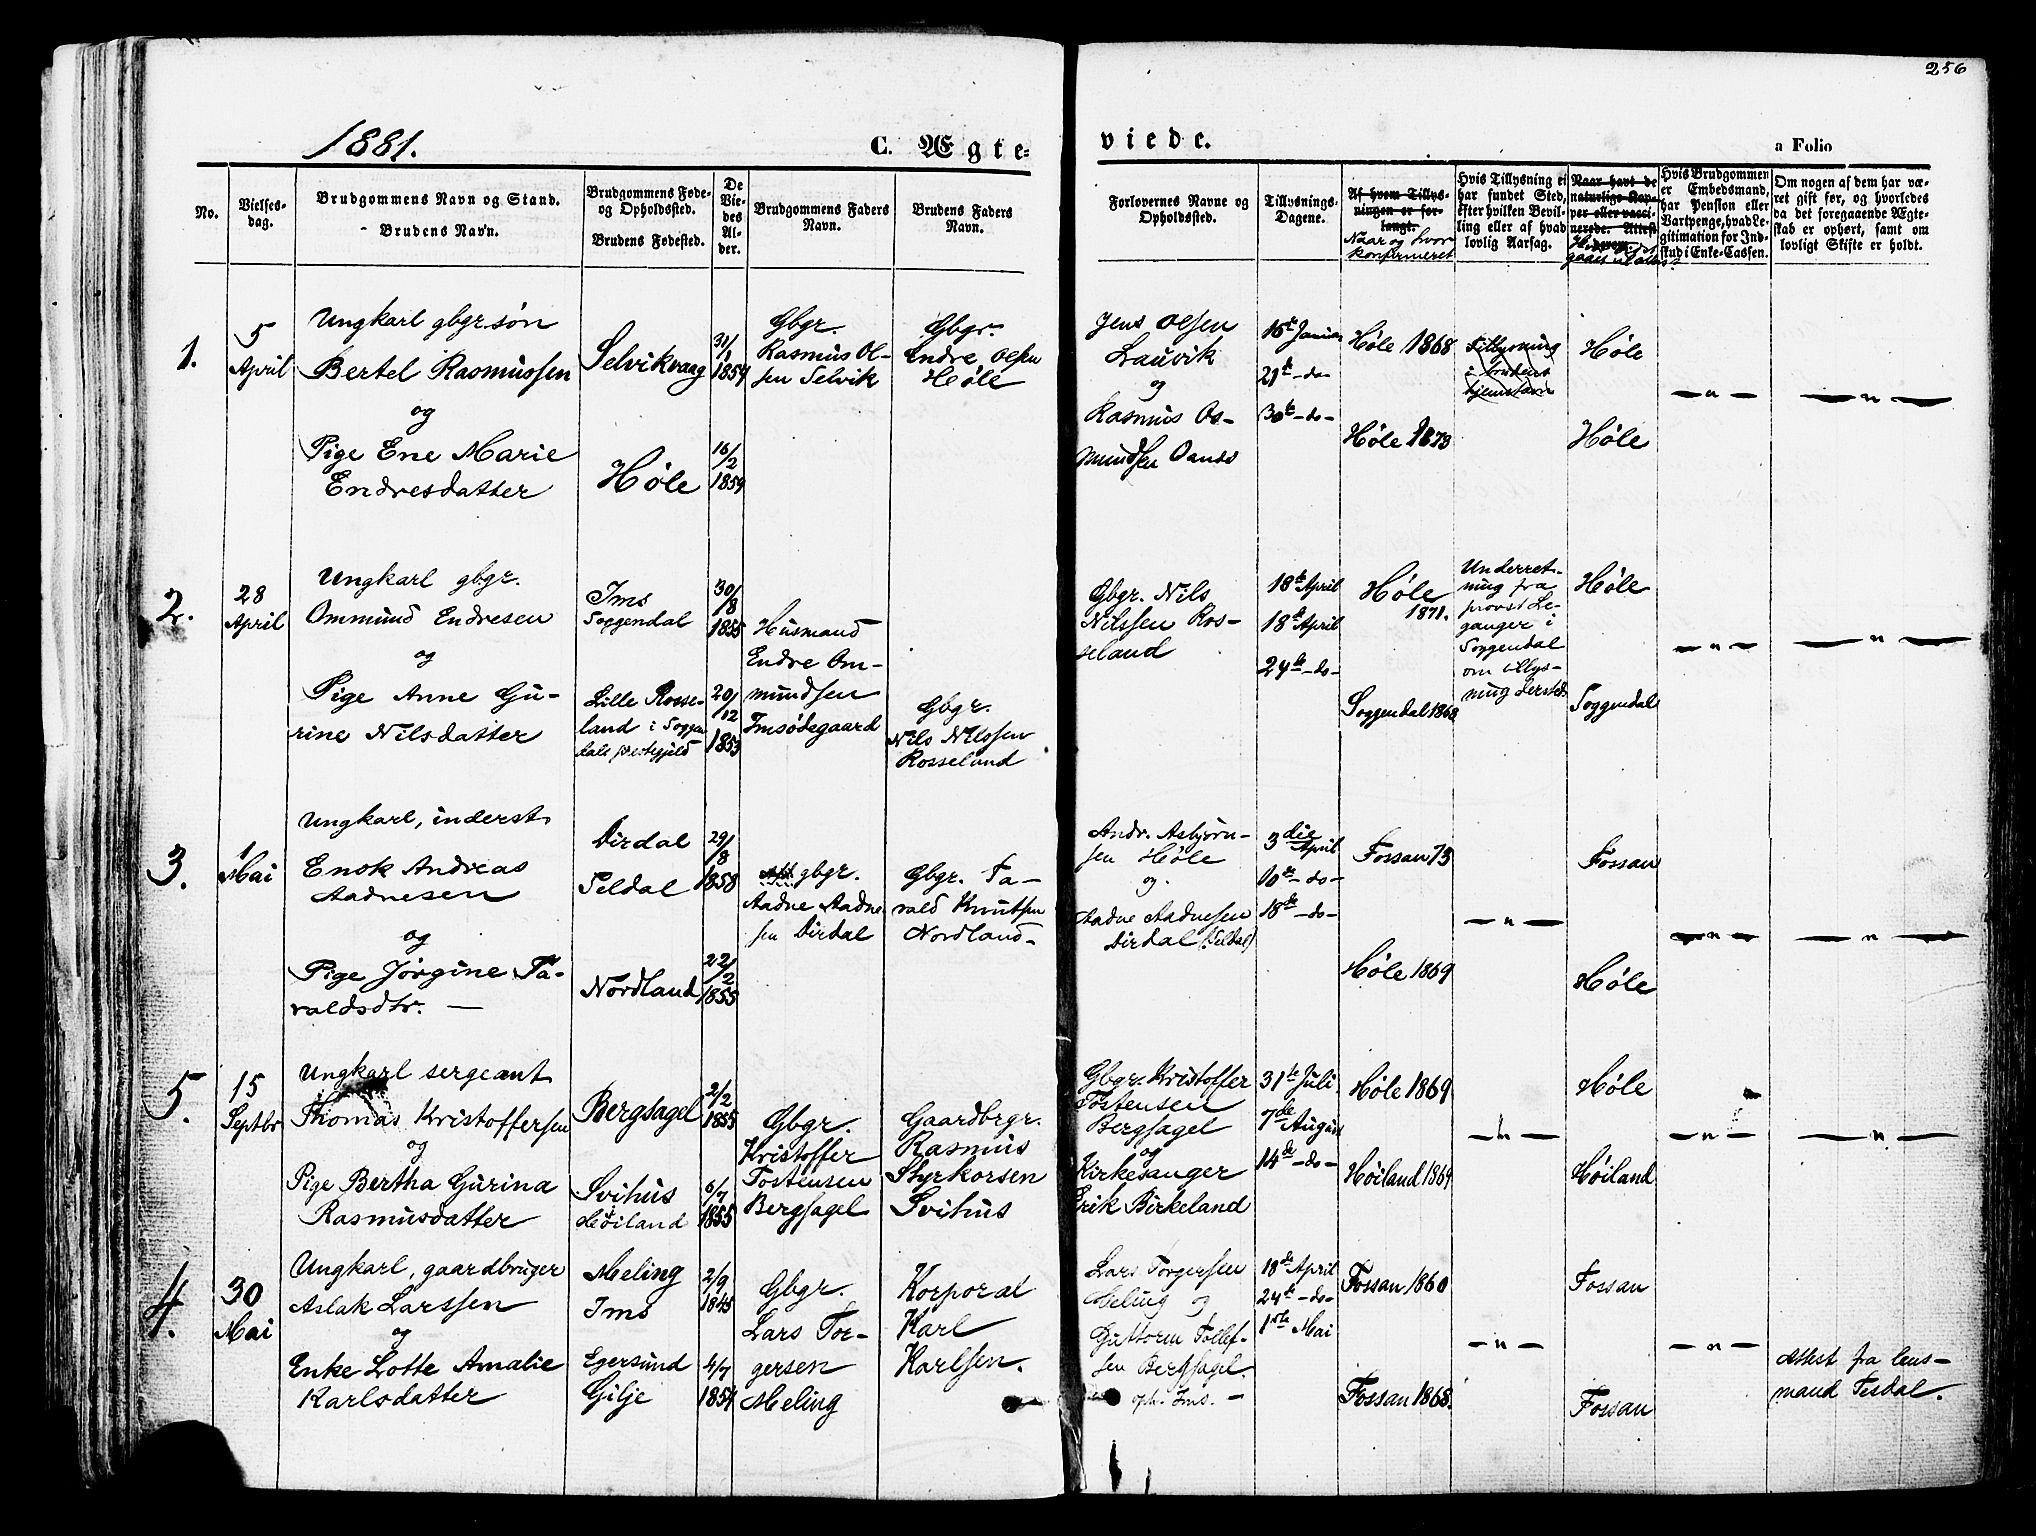 256
1881.
C. Ægte-
viede.
a Folio
No.
Vielses-
dag.
Brudgommens Navn og Stand.
- Brudens Navn.
Brudgommens Føde-
og Opholdssted.
Brudens Fødested.
De
Vie-
des
Al-
der.
Brudgommens Faders
Navn.
Brudens Faders
Navn.
Forlovernes Navne og
Opholdssted.
Tillysnings-
Dagene.
Af hvem Tillys-
ningen er for-
langt.
Naar og hvor
konfirmeret
Hvis Tillysning ei
har fundet Sted,
efter hvilken Bevil-
ling eller af hvad
lovlig Aarsag.
Naar havt de
naturlige Kop-
per eller vacci-
nerede. Attest
Hvis Brudgommen
er Embedsmand,
har Pension eller
Vartpenge, hvad Le-
gitimation for Ind-
skud i Enke-Cassen.
Om nogen af dem har væ-
ret gift før, og hvorledes
da det foregaaende Ægte-
skab er ophørt, samt om
lovligt Skifte er holdt.
1.
5
April
Ungkarl gbgr. søn
Bertel Rasmussen
og
Pige Ene Marie
Endresdatter
Selvikvaag
Høle
31/1
1854
16/2
1859
Gbgr.
Rasmus Ol-
sen Selvik
Gbgr.
Endre Olsen
Høle
Jens Olsen
Lauvik
og
Rasmus Os-
mundsen Oanes
16de Januar
21de -do-
30te -do-
Høle 1868
Høle 1873
Tillysning
i brudens
hjemstavn
Høle
Høle
— " —
— " —
2.
28
April
Ungkarl gbgr.
Ommund Endresen
og
Pige Anne Gu-
rine Nilsdatter
Ims
Soggendal
Lille Rosse-
land i Soggen
dals prestegjeld
30/8
1855
20/12
1853
Husmand
Endre Om-
mundsen
Imsødegaard
Gbgr.
Nils Nilssen
Rosseland
Gbgr. Nils
Nilssen Ros-
seland
18de April
18de April
24de -do-
Høle
1871.
Soggendal 1868
Underret-
ning fra
provst Le-
ganger i
Soggendal
om tillys-
ning dersteds
Høle
Soggendal
— " —
— " —
3.
1
Mai
Ungkarl, inderst
Enok Andreas
Aadnesen
og
Pige Jørgine Ta-
valdsdtr. —
Dirdal
Seldal
Nordland
29/8
1858
22/2
1855
gbgr.
Aadne Aadne
sen Dirdal
Gbgr. Ta-
vald Knutsen
Nordland-
Andr. Asbjørn-
sen Høle
og.
Aadne Aadnesen
Dirdal (Seldal)
3die April
10de -do-
18de -do-
Fossan 73
Høle 1869
— " —
Fossan
Høle
— " —
— " —
5.
15
Septbr
Ungkarl sergeant
Thomas Kristoffersen
og
Pige Bertha Gurina
Rasmusdatter
Bergsagel
Svihus
Høiland
2/2
1855
6/7
1855
Gbgr.
Kristoffer
Tostensen
Bergsagel
Gaardbrgr.
Rasmus
Styrkorsen
Svihus
Gbgr. Kristoffer
Tostensen
Bergsagel
og
Kirkesanger
Erik Birkeland
31te Juli
7de August
14de -do-
Høle 1869
Høiland 1869
— " —
Høle
Høiland
— " —
— " —
4.
30
Mai
Ungkarl, gaardbruger
Aslak Larssen
og
Enke Lotte Amalie
Karlsdatter
Meling
Ims
Egersund
Gilje
2/9
1845
4/7
1854
Gbgr.
Lars Tor-
gersen
Meling
Korporal
Karl
Karlsen.
Lars Torgersen
Meling og
Guttorm Tollef-
sen Bergsagel.
oph. Ims. -
18de April
24de -do-
1ste Mai
Fossan 1860
Fossan 1868.
— " —
Fossan
Fossan
— " —
Attest fra lens-
mand Tisdal.